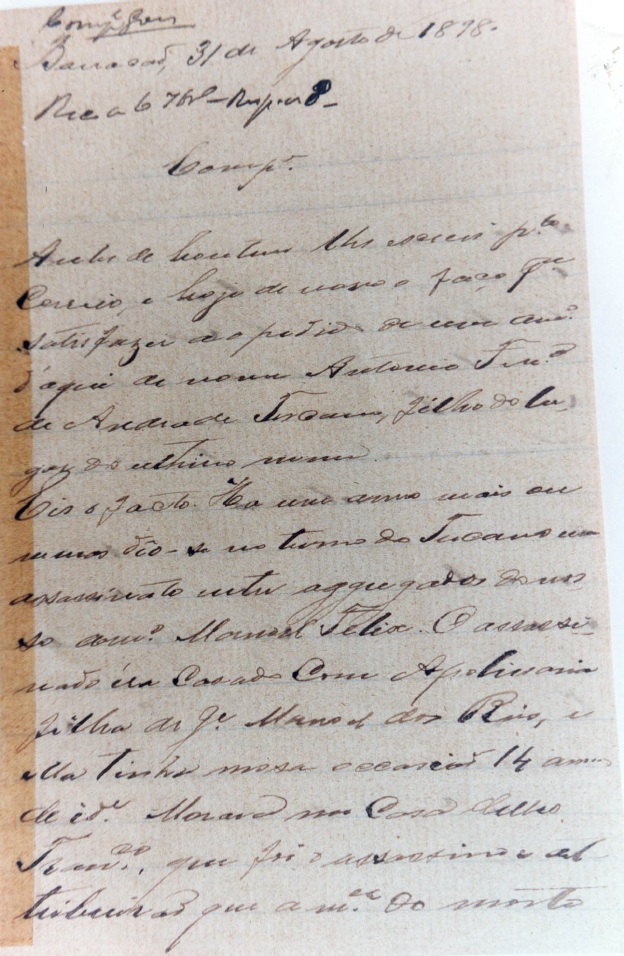 Barracão, 31 de Agosto de 1898.
Rec a 6 7bro
Comp.e
Antes de hontem lhe escrevi p.lo
Correio, e hoje de novo o faço p.a
satisfazer ao pedido de um am.o
d'aqui de nome Antonio
de Andrade Tucano, filho do lu-
gar do ultimo nome.
Eis o facto. Ha um anno mais ou
menos dio-se no termo do Tucano um
assassinato entre aggregados do nos-
so am.o Manoel Felix. O assassi-
nado éra Casado Com Apolinaria
filha de J.e Manoel dos Reis, e
ella tinha nessa occasião 14 annos
de id.e Morava na Casa delles
Fran.co, que foi o assassino e at
tribuirão que a m.er do morto